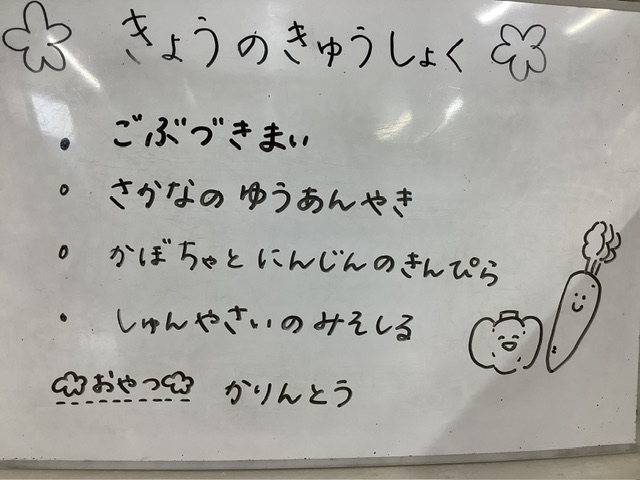 きょうのきゅうしょく
・ごぶづきまい
・さかなのゆうあんやき
・かぼちゃとにんじんのきんぴら
・しゅんやさいのみそしる
おやつ かりんとう